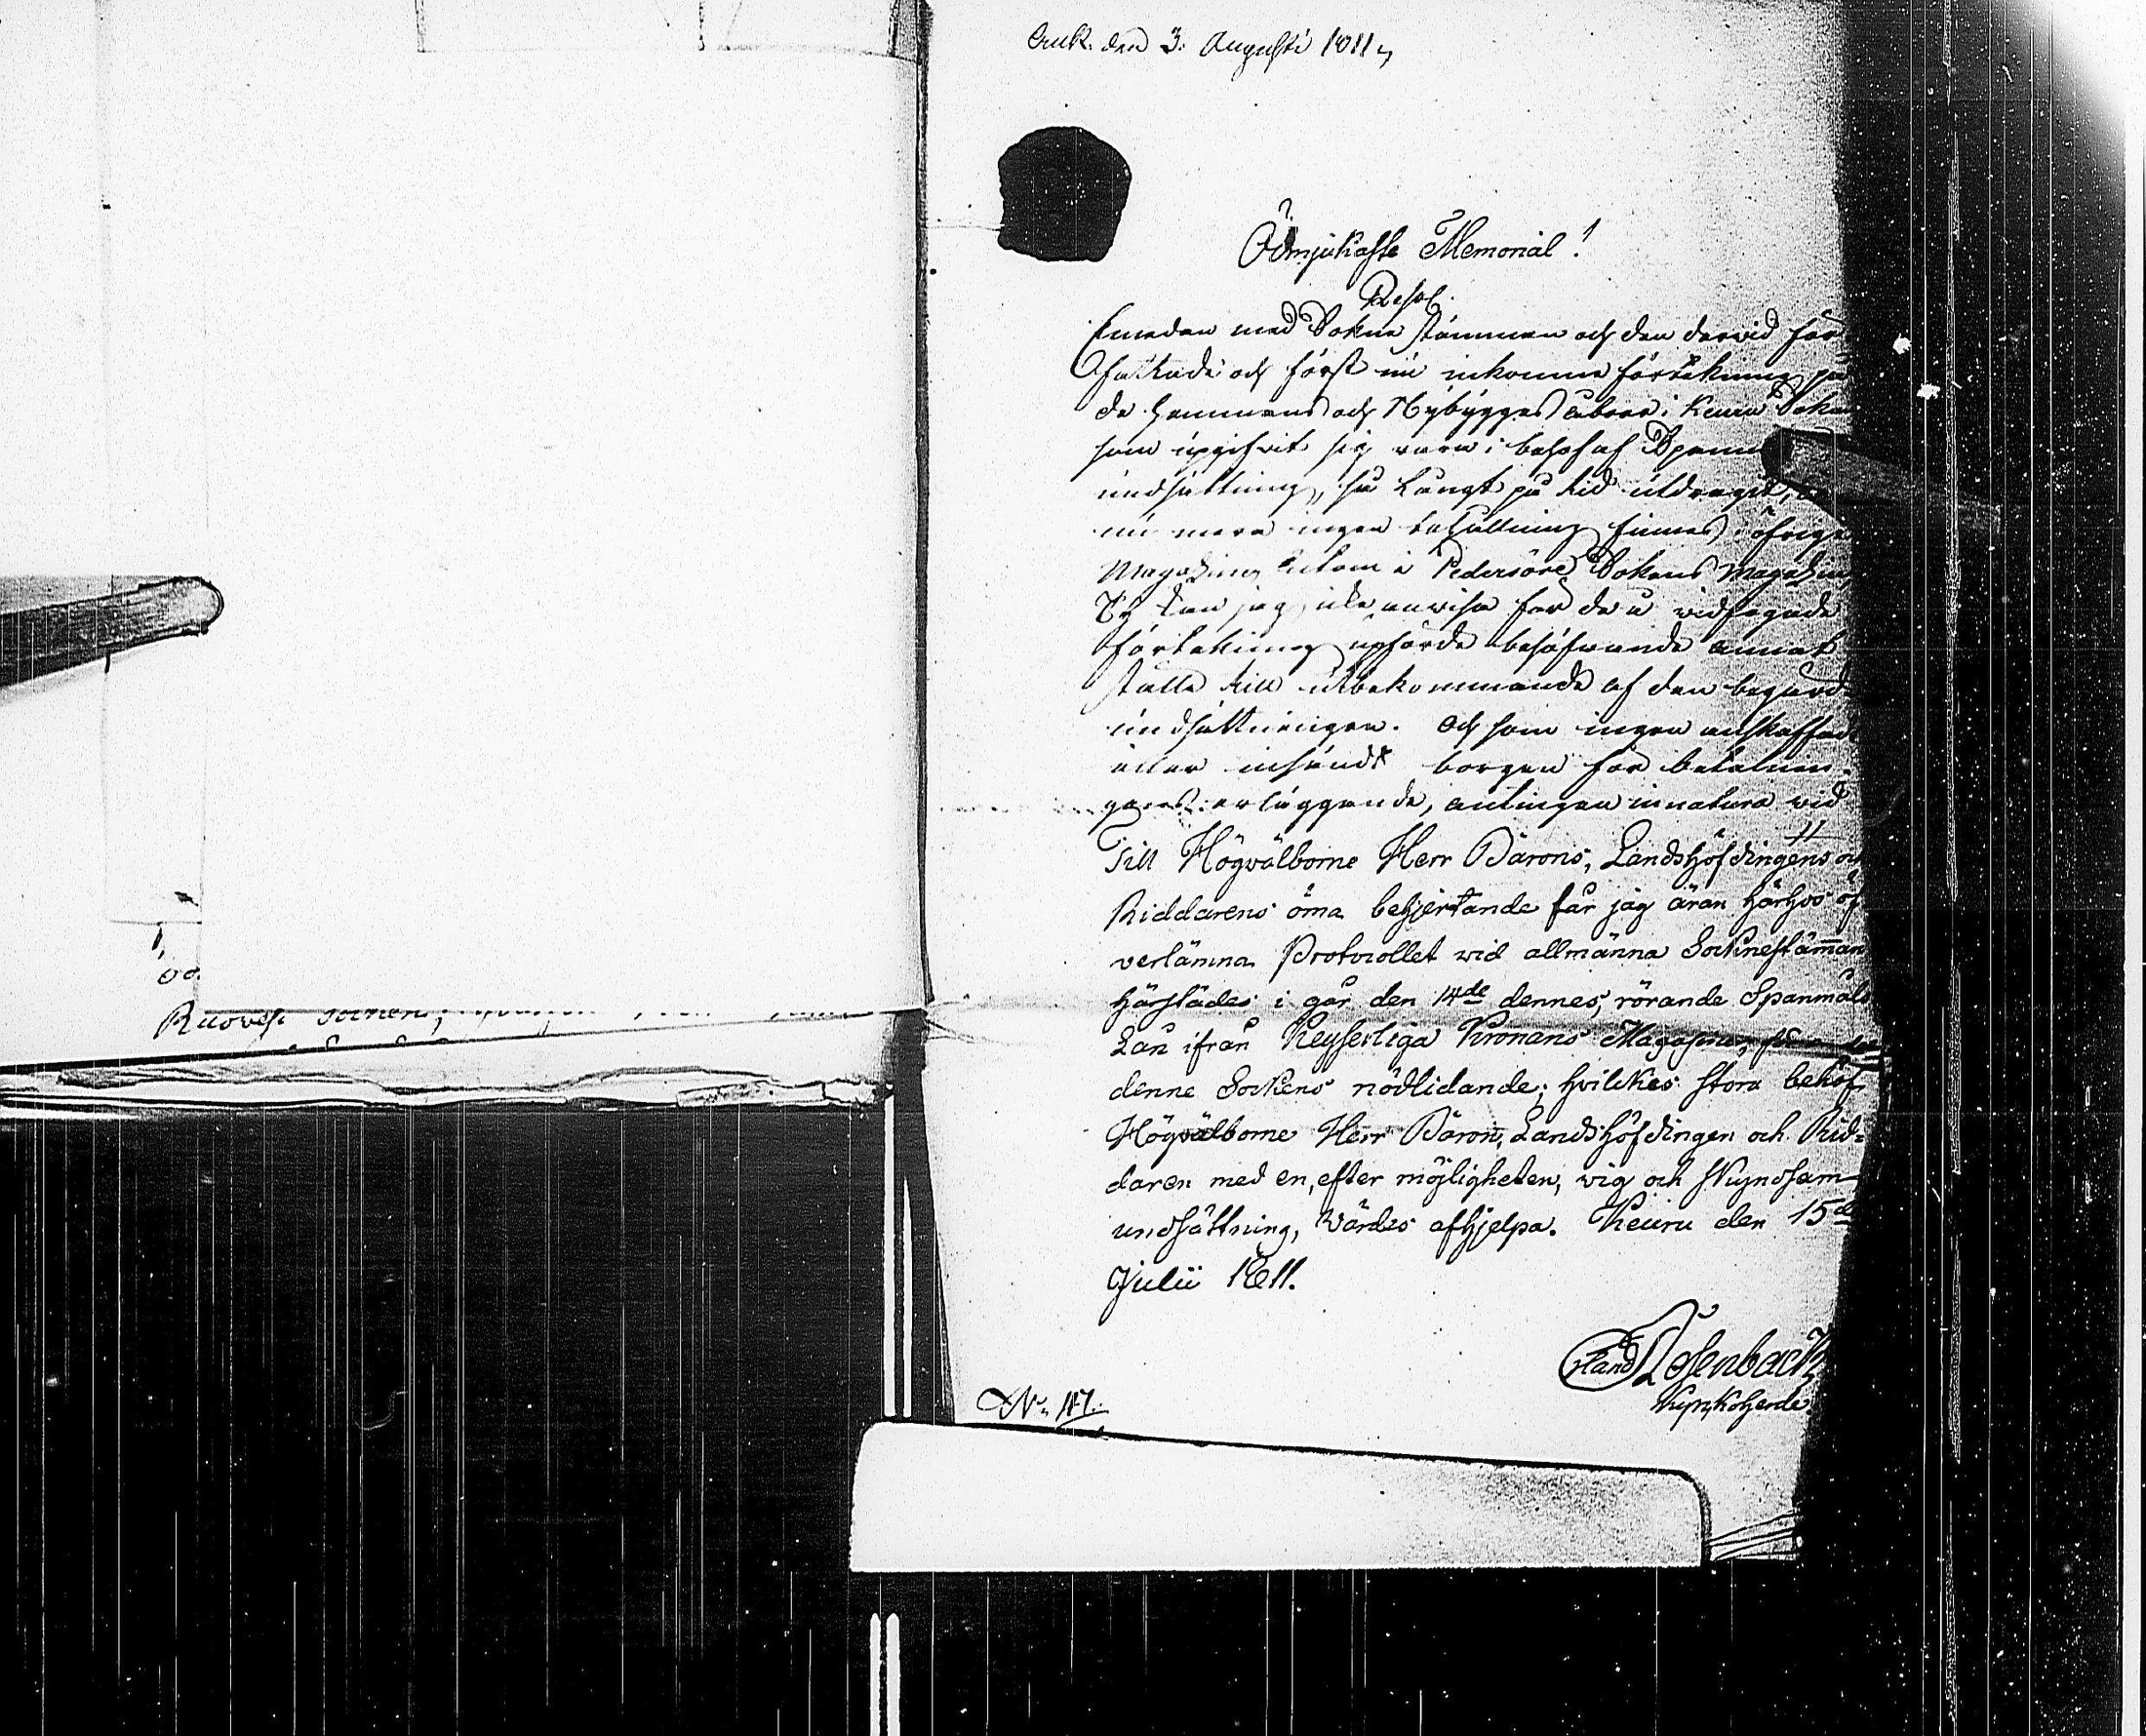 den 3. Augusti 1811
Ödmjukaste Memorial!
Resol.
Emedan med Sokne stämman och den dervid för
fattade och först nu inkomne förtekning på
de hemmans och Nybygges åboer i Keuru Sokn
som upgifvit sig vara i behof af Spanm
undsättning, så långt på tid utdragit,
nu mera ingen behållning finnes i öfrige
Magaziner utom i Pedersöre Sokens Magazin
Ty kan jag icke anvisa för de å vidfogade
förtekning upförde behöfvande annat
ställe till utbekommande af den begärde
undsättningen. Och som ingen anskaffad
eller insändt borgen för betalnin-
gens erläggande, antingen in natura vid
Till Högvälborne Herr Barons, Landshöfdingens och
Riddarens öma behjertande får jag äran härhos öf
verlämna Protocollet wid allmänna Socknestämman
härstädes i går den 14de dennes, rörande Spanmåls
Lån ifrån Keyserliga Kronans Magasin,
denne Sockens nödlidande; hvilckes stora behof,
Högvälborne Herr Baron, Landshöfdingen och Rid-
daren med en, efter möjligheten, vig och skyndsam
undsättning, Värdes afhjelpa. Keuru den 15de
Julii 1811.
Erland Rosenback
Kyrckoherde.
No 117.
Ruovesi Socken,